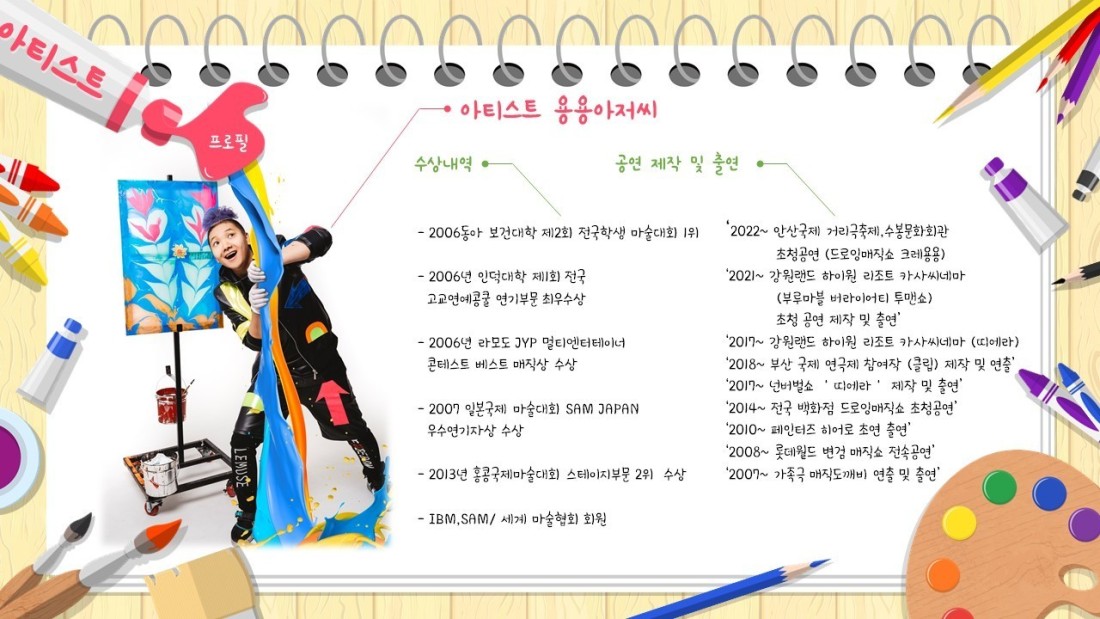 아티스트
프로필
아티스트 용용아저씨
수상내역
- 2006동아 보건대학 제2회 전국학생 마술대회 1위
- 2006년 인덕대학 제1회 전국
고교연예콩쿨 연기부문 최우수상
- 2006년 라모도 JYP 멀티엔터테이너
콘테스트 베스트 매직상 수상
- 2007 일본국제 마술대회 SAM JAPAN
우수연기자상 수상
- 2013년 홍콩국제마술대회 스테이지부문 2위 수상
- IBM,SAM/ 세계 마술협회 회원
공연 제작 및 출연
'2022~ 안산국제 거리극축제,수봉문화회관
초청공연 (드로잉매직쇼 크레용용)
'2021~ 강원랜드 하이원 리조트 카사씨네마
(부루마블 버라이어티 투맨쇼)
초청 공연 제작 및 출연'
'2017~ 강원랜드 하이원 리조트 카사씨네마 (띠에라)
'2018~ 부산 국제 연극제 참여작 (클림) 제작 및 연출'
'2017~ 넌버벌쇼 ' 띠에라 ' 제작 및 출연'
'2014~ 전국 백화점 드로잉매직쇼 초청공연'
'2010~ 페인터즈 히어로 초연 출연'
'2008~ 롯데월드 변검 매직쇼 전속공연'
'2007~ 가족극 매직도깨비 연출 및 출연'
LEMUSE